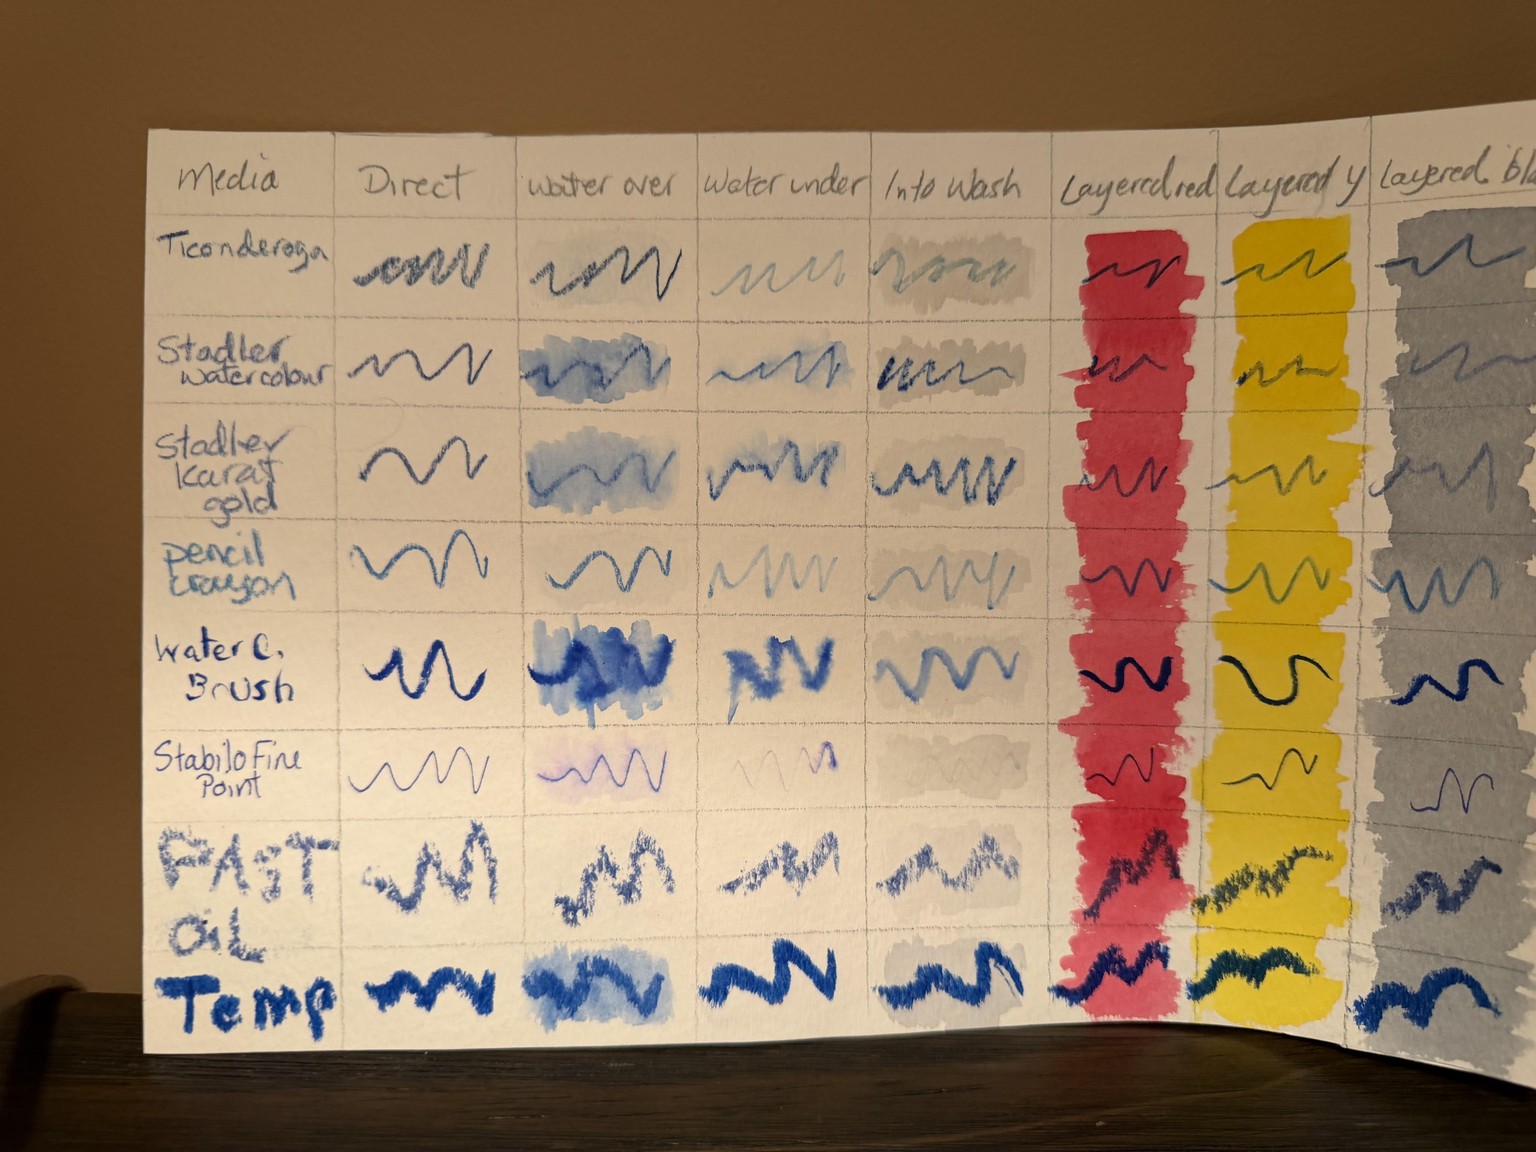 Media Direct Water over Water under Into Wash Layered red Layered y Layered bla
Ticonderoga
Stadler
watercolour
Stadler
Karat
gold
pencil
crayon
Water C.
Brush
Stabilo Fine
Point
PAST
OIL
Temp